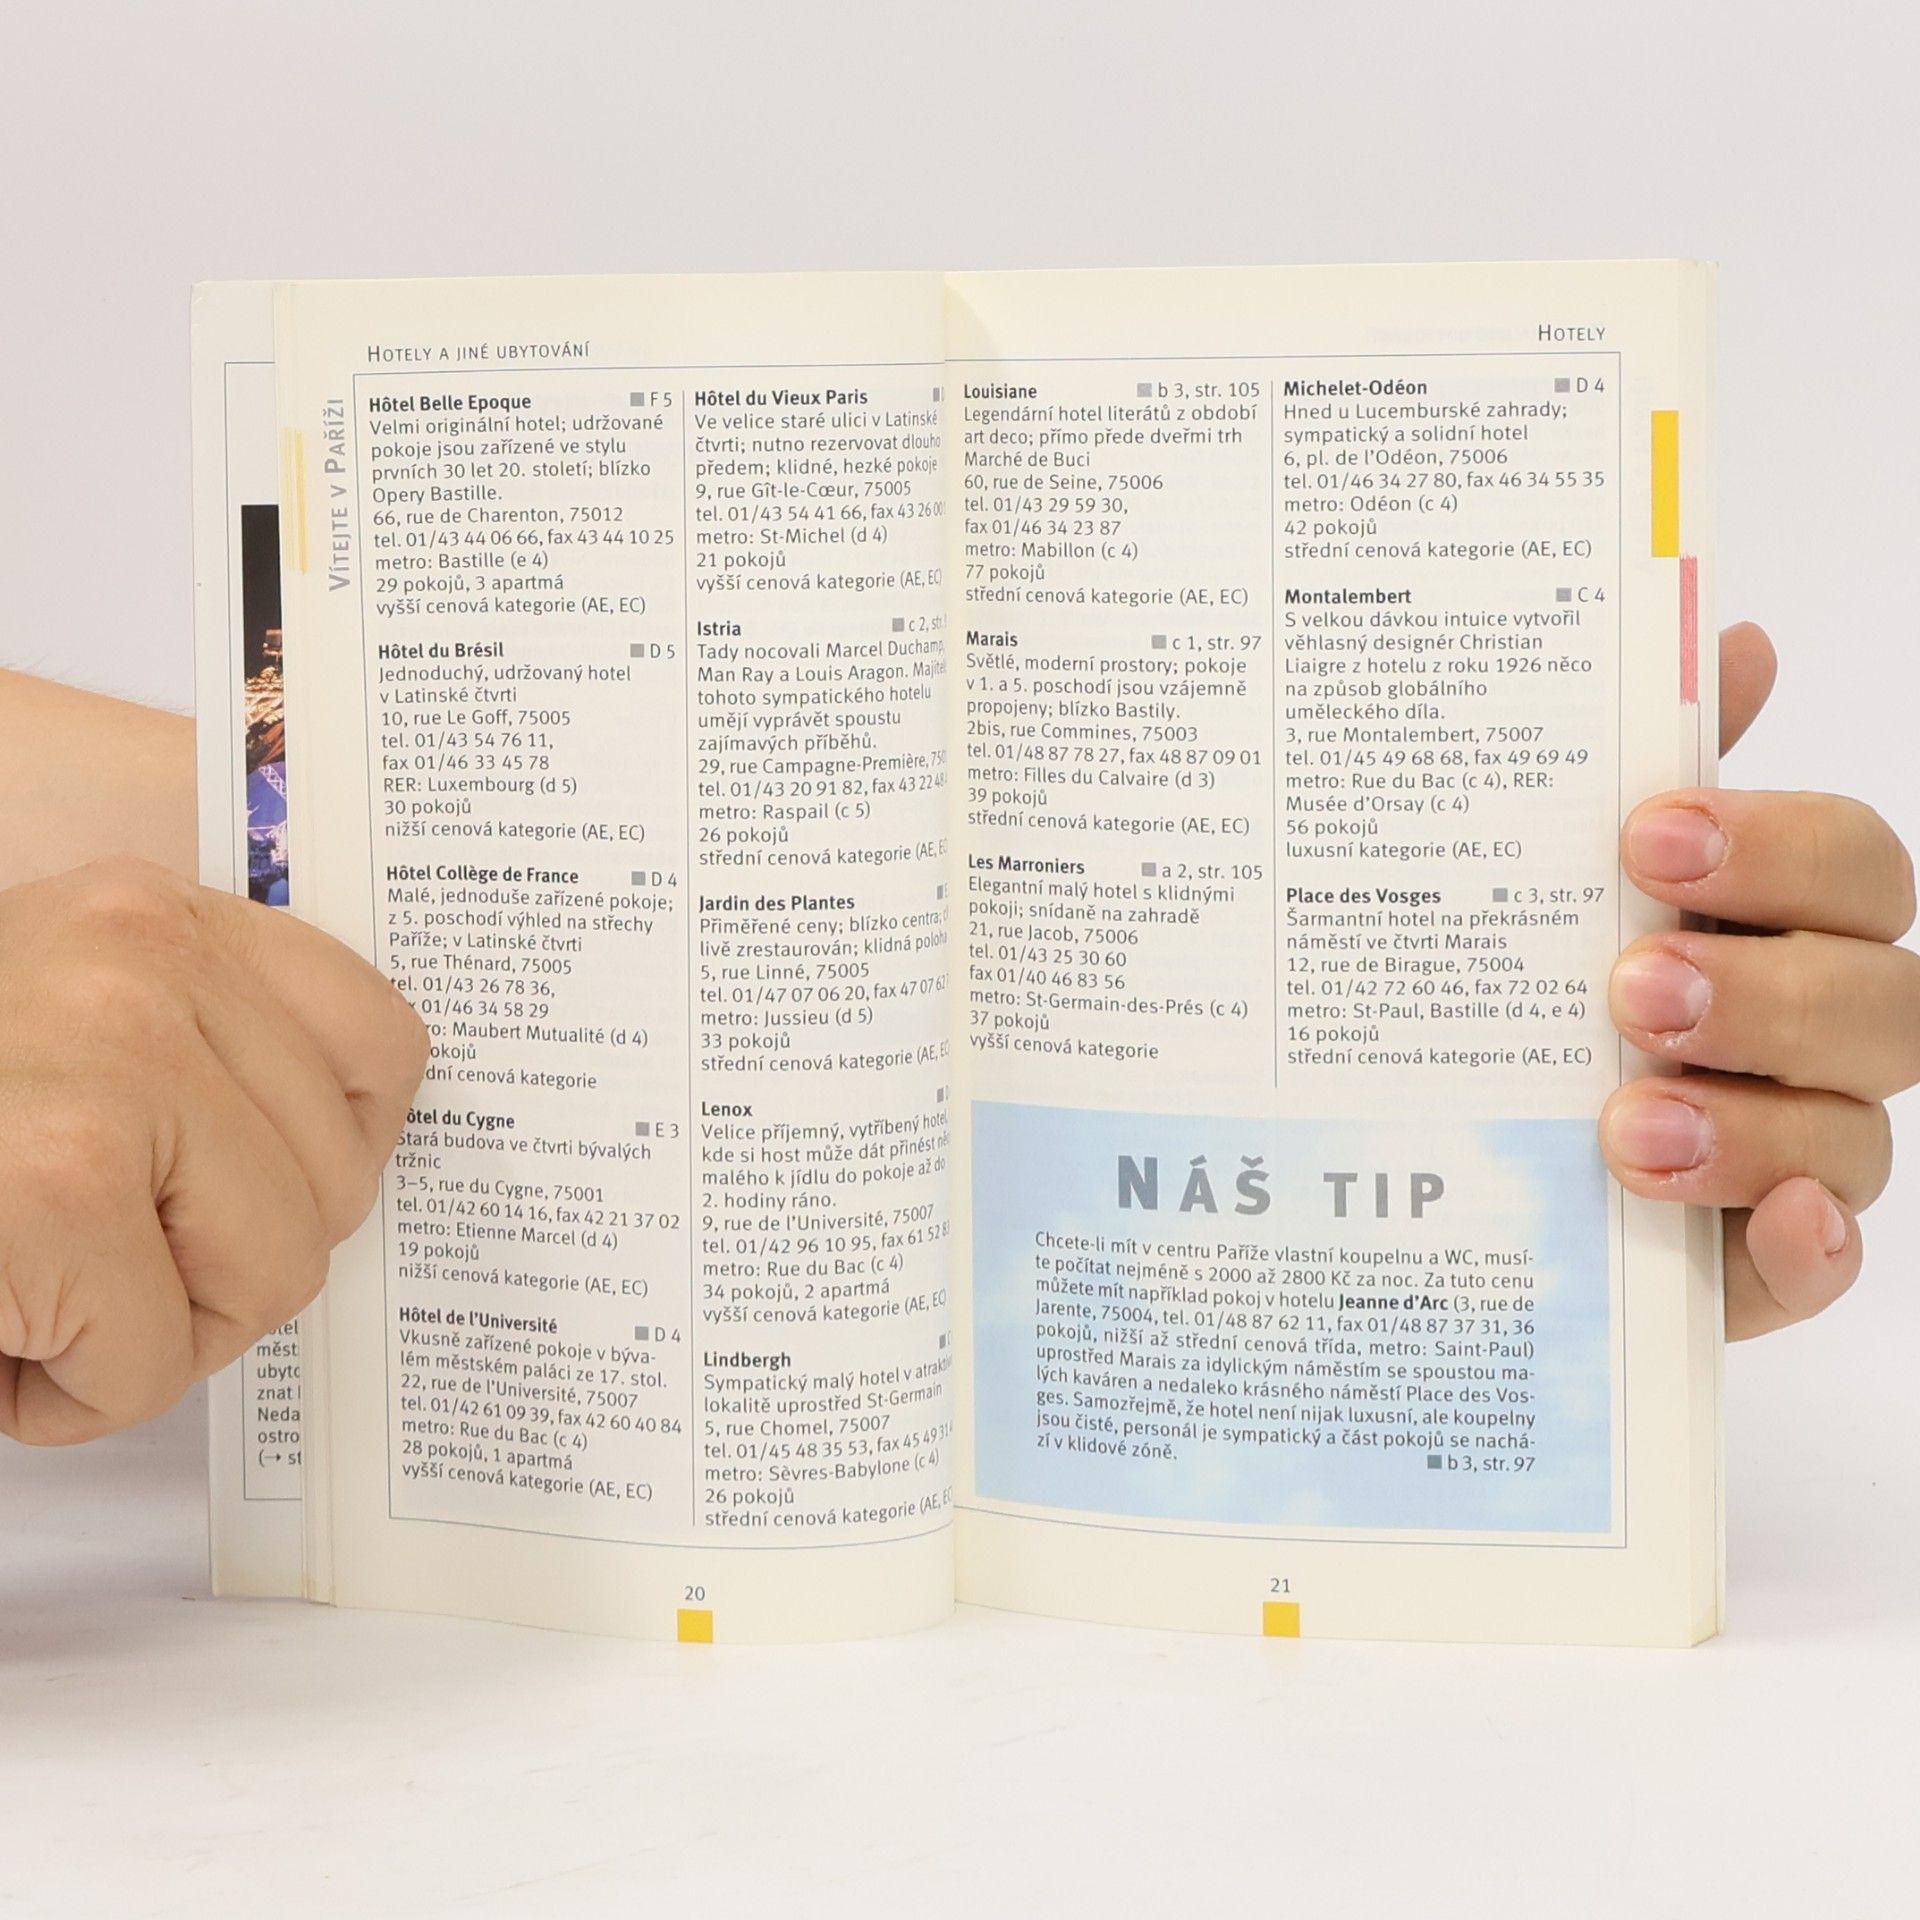 HOTELY A JINÉ UBYTOVÁNÍ
VÍTEJTE V PAŘÍŽI
Hôtel Belle Epoque F 5
Velmi originální hotel; udržované
pokoje jsou zařízené ve stylu
prvních 30 let 20. století; blízko
Opery Bastille.
66, rue de Charenton, 75012
tel. 01/43 44 06 66, fax 43 44 10 25
metro: Bastille (e 4)
29 pokojů, 3 apartmá
vyšší cenová kategorie (AE, EC)
Hôtel du Brésil D 5
Jednoduchý, udržovaný hotel
v Latinské čtvrti
10, rue Le Goff, 75005
tel. 01/43 54 76 11,
fax 01/46 33 45 78
RER: Luxembourg (d 5)
30 pokojů
nižší cenová kategorie (AE, EC)
Hôtel Collège de France D 4
Malé, jednoduše zařízené pokoje;
z 5. poschodí výhled na střechy
Paříže; v Latinské čtvrti
5, rue Thénard, 75005
tel. 01/43 26 78 36,
01/46 34 58 29
Maubert Mutualité (d 4)
cenová kategorie
Hôtel du Cygne E 3
Stará budova ve čtvrti bývalých
tržnic
3–5, rue du Cygne, 75001
tel. 01/42 60 14 16, fax 42 21 37 02
metro: Etienne Marcel (d 4)
19 pokojů
nižší cenová kategorie (AE, EC)
Hôtel de l'Université D 4
Vkusně zařízené pokoje v býva-
lém městském paláci ze 17. stol.
22, rue de l'Université, 75007
tel. 01/42 61 09 39, fax 42 60 40 84
metro: Rue du Bac (c 4)
28 pokojů, 1 apartmá
vyšší cenová kategorie (AE, EC)
Hôtel du Vieux Paris
Ve velice staré ulici v Latinské
čtvrti; nutno rezervovat dlouho
předem; klidné, hezké pokoje
9, rue Gît-le-Cœur, 75005
tel. 01/43 54 41 66, fax 43 26 00
metro: St-Michel (d 4)
21 pokojů
vyšší cenová kategorie (AE, EC)
Istria c 2, str.
Tady nocovali Marcel Duchamp,
Man Ray a Louis Aragon. Majitel
tohoto sympatického hotelu
umějí vyprávět spoustu
zajímavých příběhů.
29, rue Campagne-Première,
tel. 01/43 20 91 82, fax 43 22 48
metro: Raspail (c 5)
26 pokojů
střední cenová kategorie (AE, EC
Jardin des Plantes
Přiměřené ceny; blízko centra;
livě zrestaurován; klidná poloha
5, rue Linné, 75005
tel. 01/47 07 06 20, fax 47 07 62
metro: Jussieu (d 5)
33 pokojů
střední cenová kategorie (AE, EC
Lenox
Velice příjemný, vytříbený hotel,
kde si host může dát přinést
malého k jídlu do pokoje až do
2. hodiny ráno.
9, rue de l'Université, 75007
tel. 01/42 96 10 95, fax 61 52 83
metro: Rue du Bac (c 4)
34 pokojů, 2 apartmá
vyšší cenová kategorie (AE, EC)
Lindbergh
Sympatický malý hotel v
lokalitě uprostřed St-Germain
5, rue Chomel, 75007
tel. 01/45 48 35 53, fax 45 49 31
metro: Sèvres-Babylone (c 4)
26 pokojů
střední cenová kategorie (AE, EC
20
HOTELY
Louisiane b 3, str. 105
Legendární hotel literátů z období
art deco; přímo přede dveřmi trh
Marché de Buci
60, rue de Seine, 75006
tel. 01/43 29 59 30,
fax 01/46 34 23 87
metro: Mabillon (c 4)
77 pokojů
střední cenová kategorie (AE, EC)
Marais c 1, str. 97
Světlé, moderní prostory; pokoje
v 1. a 5. poschodí jsou vzájemně
propojeny; blízko Bastily.
2bis, rue Commines, 75003
tel. 01/48 87 78 27, fax 48 87 09 01
metro: Filles du Calvaire (d 3)
39 pokojů
střední cenová kategorie (AE, EC)
Les Marroniers a 2, str. 105
Elegantní malý hotel s klidnými
pokoji; snídaně na zahradě
21, rue Jacob, 75006
tel. 01/43 25 30 60
fax 01/40 46 83 56
metro: St-Germain-des-Prés (c 4)
37 pokojů
vyšší cenová kategorie
Michelet-Odéon D 4
Hned u Lucemburské zahrady;
sympatický a solidní hotel
6, pl. de l'Odéon, 75006
tel. 01/46 34 27 80, fax 46 34 55 35
metro: Odéon (c 4)
42 pokojů
střední cenová kategorie (AE, EC)
Montalembert C 4
S velkou dávkou intuice vytvořil
věhlasný designér Christian
Liaigre z hotelu z roku 1926 něco
na způsob globálního
uměleckého díla.
3, rue Montalembert, 75007
tel. 01/45 49 68 68, fax 49 69 49
metro: Rue du Bac (c 4), RER:
Musée d'Orsay (c 4)
56 pokojů
luxusní kategorie (AE, EC)
Place des Vosges c 3, str. 97
Šarmantní hotel na překrásném
náměstí ve čtvrti Marais
12, rue de Birague, 75004
tel. 01/42 72 60 46, fax 72 02 64
metro: St-Paul, Bastille (d 4, e 4)
16 pokojů
střední cenová kategorie (AE, EC)
NÁŠ TIP
Chcete-li mít v centru Paříže vlastní koupelnu a WC, musí-
te počítat nejméně s 2000 až 2800 Kč za noc. Za tuto cenu
můžete mít například pokoj v hotelu Jeanne d'Arc (3, rue de
Jarente, 75004, tel. 01/48 87 62 11, fax 01/48 87 37 31, 36
pokojů, nižší až střední cenová třída, metro: Saint-Paul)
uprostřed Marais za idylickým náměstím se spoustou ma-
lých kaváren a nedaleko krásného náměstí Place des Vos-
ges. Samozřejmě, že hotel není nijak luxusní, ale koupelny
jsou čisté, personál je sympatický a část pokojů se nachá-
zí v klidové zóně.
b 3, str. 97
21